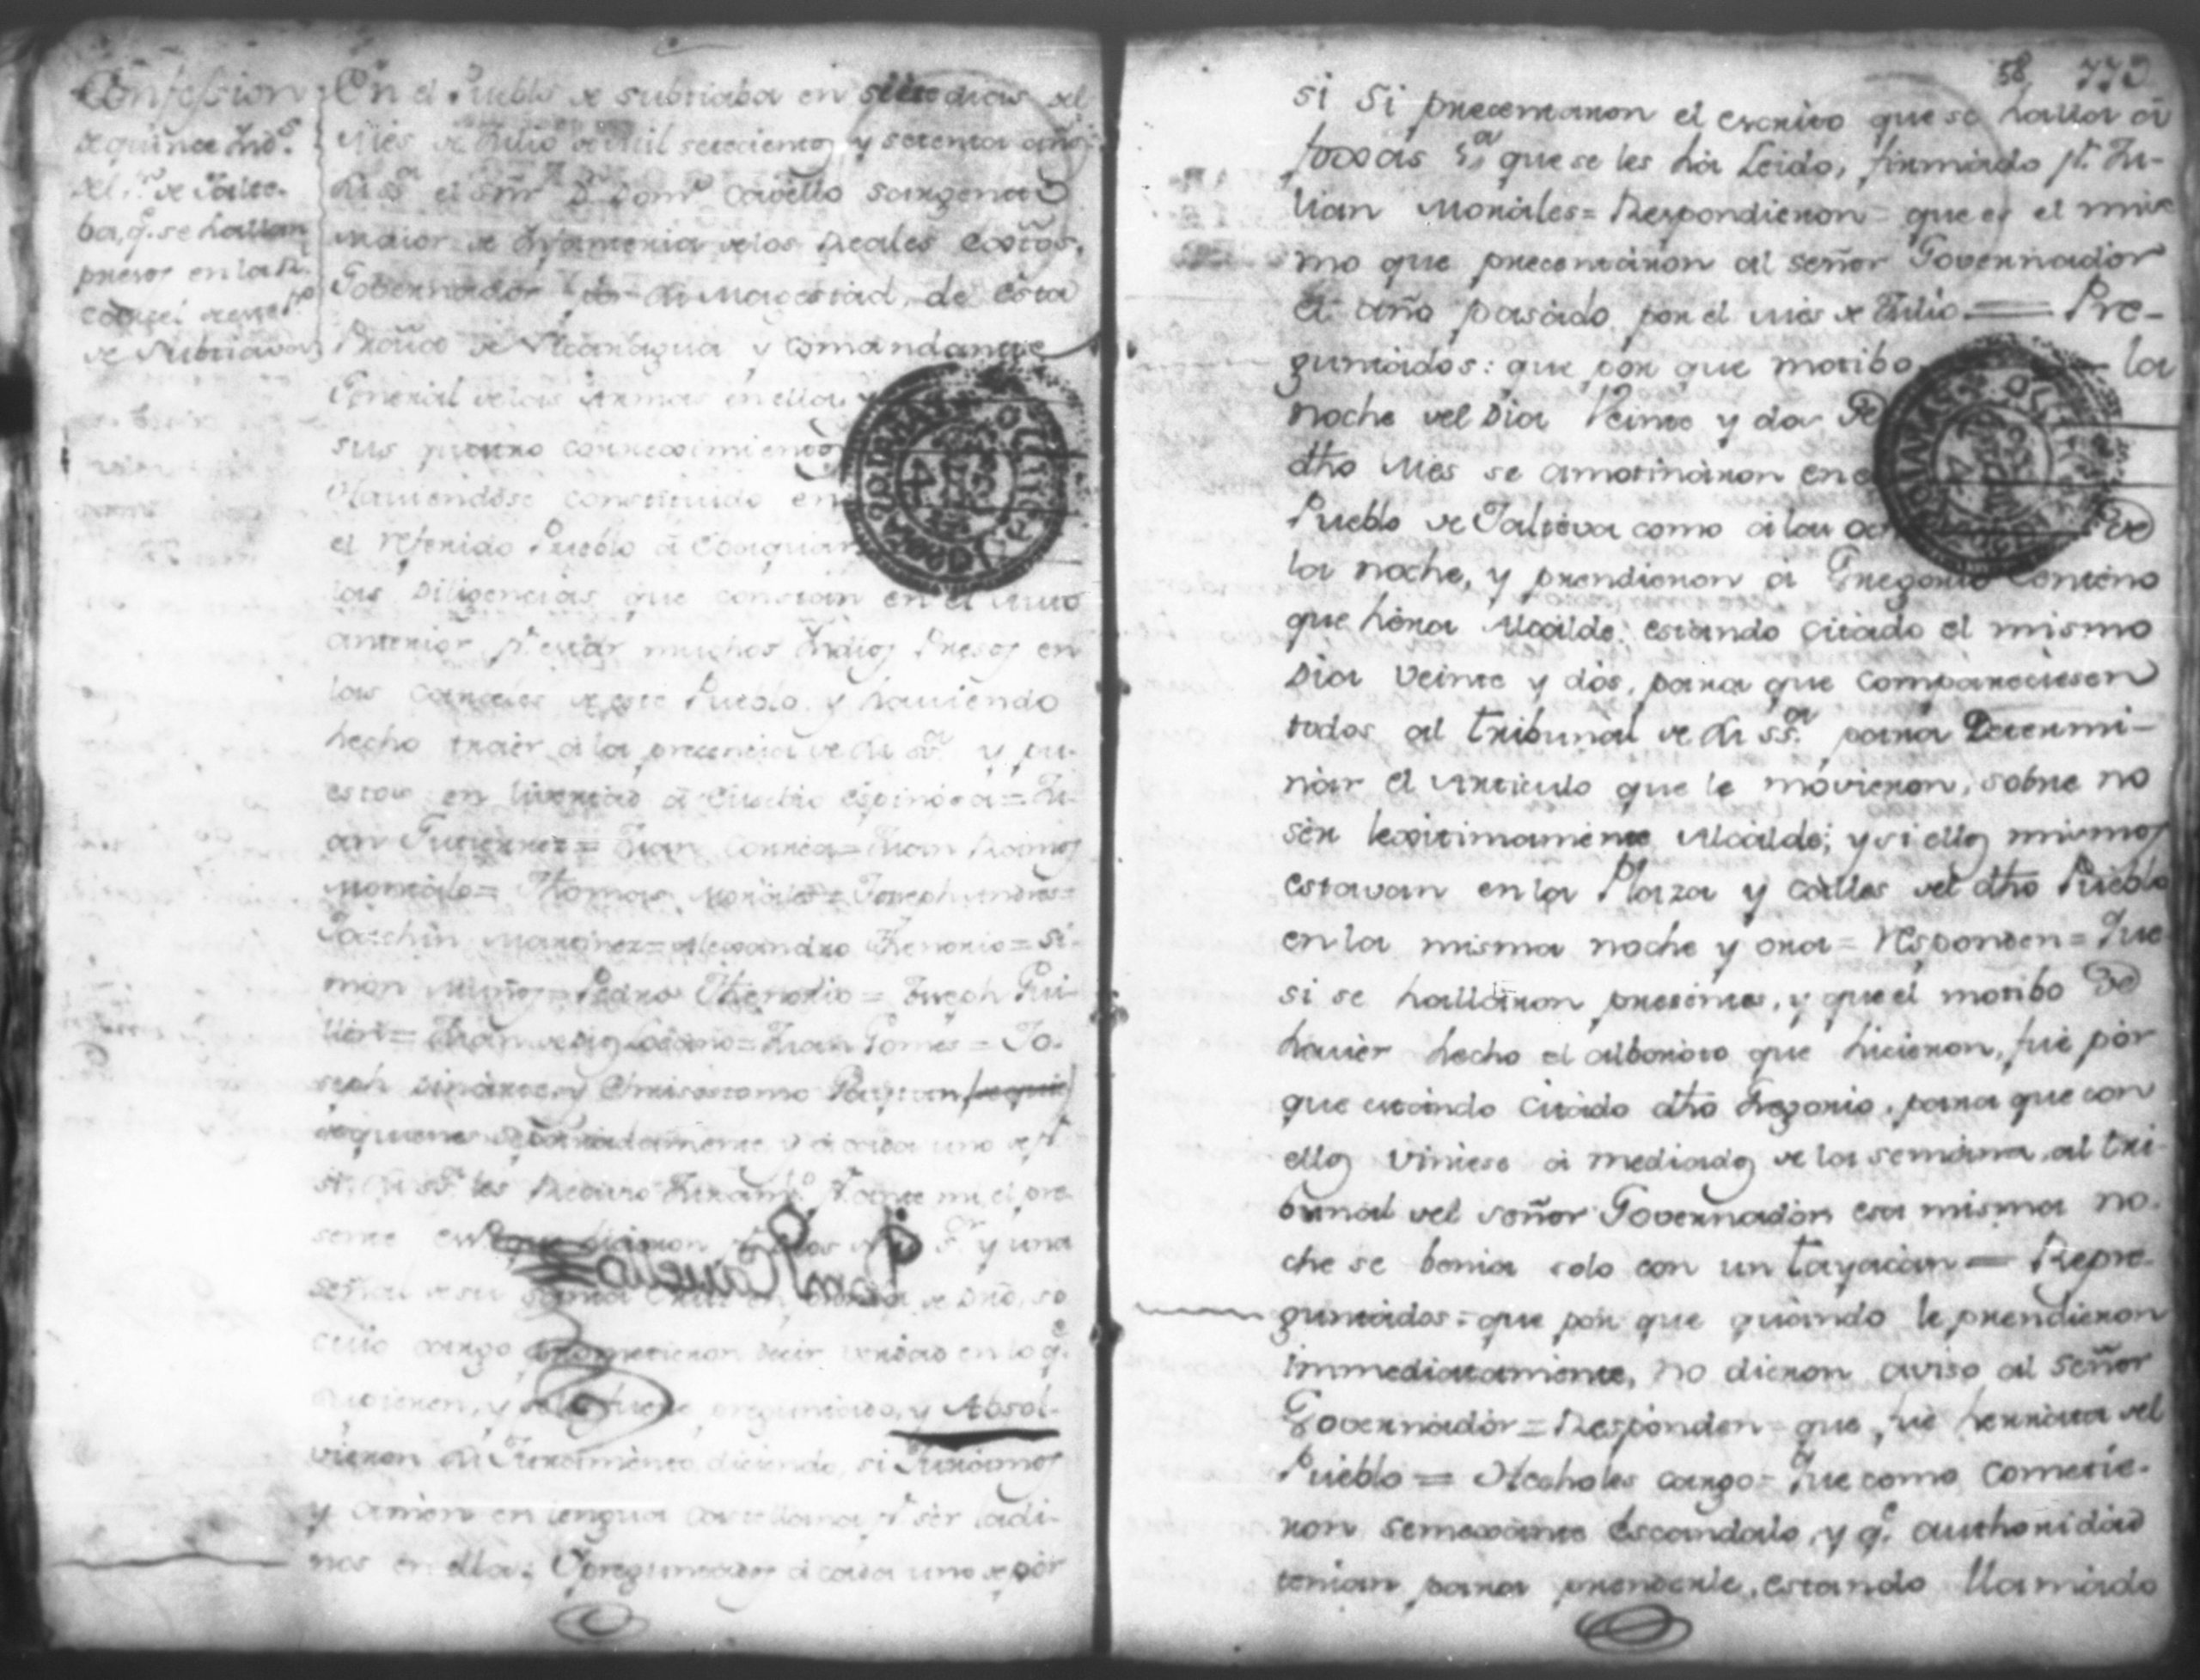 Confession
de quinse Ind.s
del P.o de Jalte-
ba, q.e se hallan
presos en la R.l
carsel de este P.o
de Subtiava
En el Pueblo de Subtiaba en siete dias del
Mes de Julio de mil setecientos, y setenta años
su S.a el Señ.r D.n Dom.o Cavello Sargento
maior de Infanteria de los Reales Exttos.
Governador por su Magestad, de esta
Prov.a de Nicaragua y Comandante
General de las Armas en ella, y
sus quatro correximientos
Haviendose constituido en
el referido Pueblo á Ebaquar
las Diligencias que constan en el Auto
anterior p.r estar muchos Indios Presos en
las Carceles de este Pueblo, y haviendo
hecho traér á la precencia de su S.a y pu-
estos en livertad á Eusebio Espinosa = Ju-
an Gutierres = Juan Correa = Juan Ramos
Morales = Thomas Morales = Joseph Andres =
Joachin Martines = Alexandro Thenorio = Si-
mon Muños = Pedro Thenorio = Joseph Gui-
llen = Juan de Dios Locano = Juan Gomes = Jo-
seph Linarte, y Chrisostomo Paytan
de quienes separadamente y á cada uno de p.r
si, su S.a les Recivio Juram.to p.r ante mi, el pre-
sente Ess.no que hisieron p.r Dios N.o S.r y una
señal de su Santa Cruz en forma de Dro, so
cuio cargo prometieron decir verdad en lo q.e
supieren, y les fuere preguntado, y Absol-
vieron su Juramento diciendo, si Juramos
y amen en lengua castellana p.r sér ladi-
nos en ella: Y preguntados á cada uno de pór
58 773
si Si precentaron el escrito que se halla á
foxas que se les há Leido, firmado p.r Ju-
lian Morales = Respondieron = que es el mis-
mo que precentáron al señor Governador
el año pasádo por el Mes de Julio = Pre-
guntádos: que por que motibo la
noche del Dia Veinte y dos de
dho Mes se amotinaron en el
Pueblo de Jalteva como á las de
la noche, y prendieron á Gregorio Centeno
que héra Alcalde: estando citádo el mismo
Dia Veinte y dós, para que Compareciesen
todos al tribunal de su S.a para Determi-
nár el Articulo que le moviéron, sobre no
sér lexitimamente Alcálde; y si ellos mismos
estavan en la Plaza y Cálles del dho Pueblo
en la misma noche y ora = responden = Que
si se halláron presentes, y que el motibo de
havér hecho el alboroto que hicieron, fué pór
que estándo Citádo dho Gregorio, para que con
ellos Viniese á mediados de la semána, al tri-
bunal del señor Governadór esa misma no-
che se benia solo con un tayacan = Repre-
guntádos = que por que quándo le prendieron
immediatamente, no dieron aviso al Señor
Governadór = Respónden = que fué herrata del
Pueblo = Hecholes cargo = Que como Cometie-
ron semexante Escandalo, y q.e authoridad
tenian para prenderle, estando llamádo